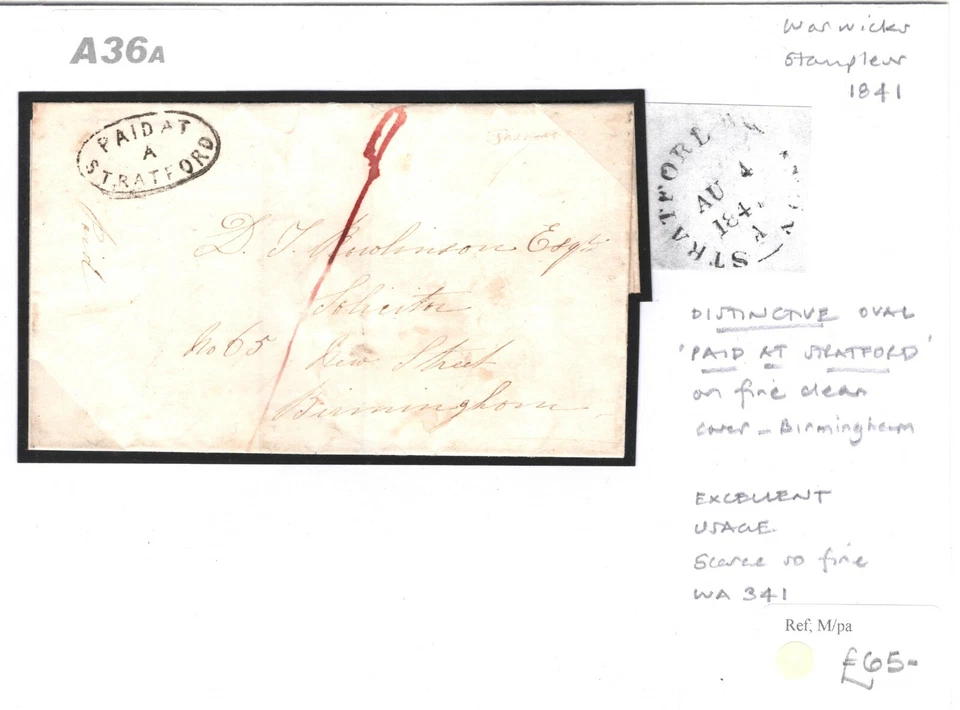 A36A
Warwicks
Stampless
1841
PAID AT
A
STRATFORD
Paid
D. T. Rawlinson Esqre
Solicitor
No 65 New Street
Birmingham
STRATFORD
AVON
AU 4
184
A
DISTINCTIVE OVAL
'PAID AT STRATFORD'
on fine clean
cover - Birmingham
EXCELLENT
USAGE
Scarce so fine
WA 341
Ref; M/pa
£65-